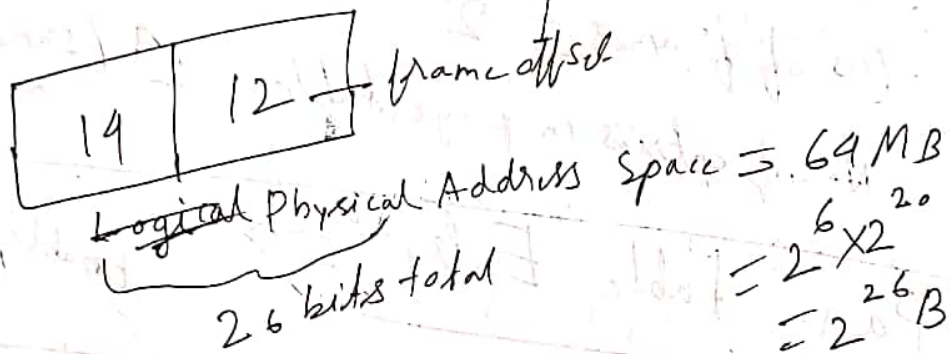 14 12 frame offset
Logical Physical Address Space = 64 MB
26 bits total = 2^6 × 2^20
= 2^26 B